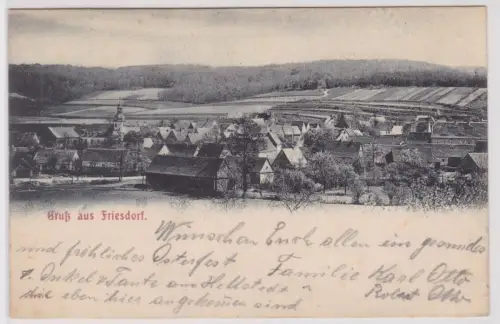 Gruß aus Friesdorf.
Wünschen Euch allen ein gesundes
und fröhliches Osterfest
Familie Karl Otto
Onkel u Tante aus Hettstedt
Robert Otto
die eben hier angekommen sind